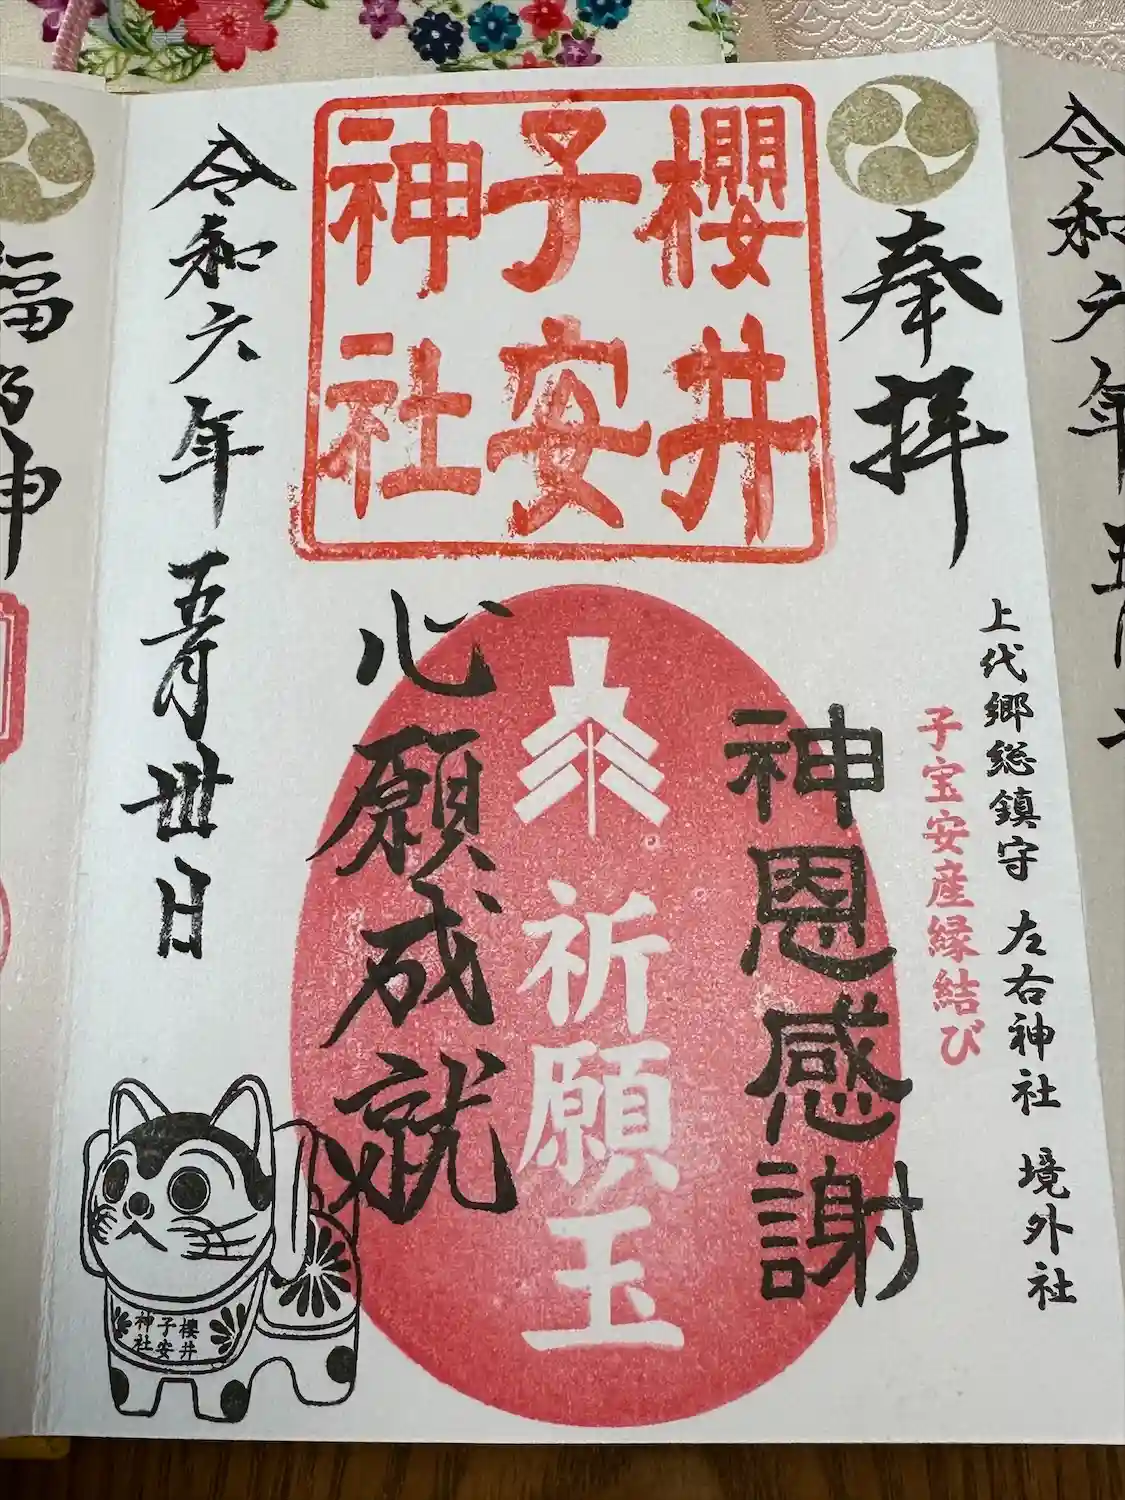 令和六年五月
奉拝
上代郷総鎮守 左右神社 境外社
子宝安産縁結び
櫻井
子安
神社
神恩感謝
祈願玉
心願成就
令和六年五月卅日
櫻井
子安
神社
神